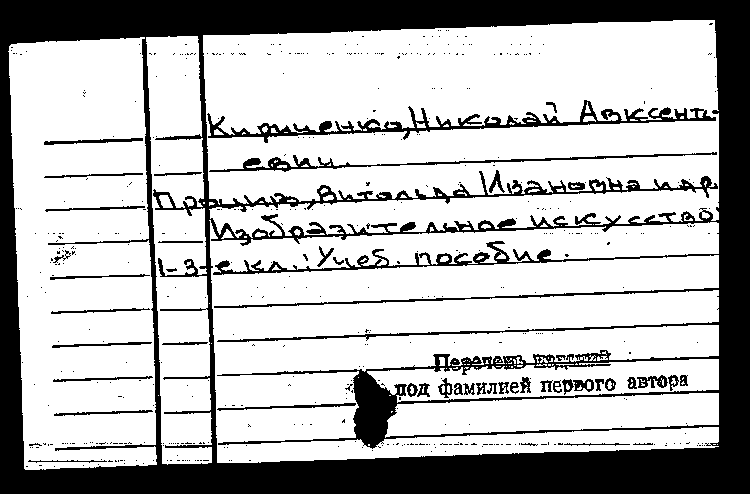 Кириченко, Николай Авксенть-
евич.
Процив, Витольда Ивановна и др.
Изобразительное искусство:
1-3-е кл.: Учеб. пособие.
Перечень изданий
под фамилией первого автора